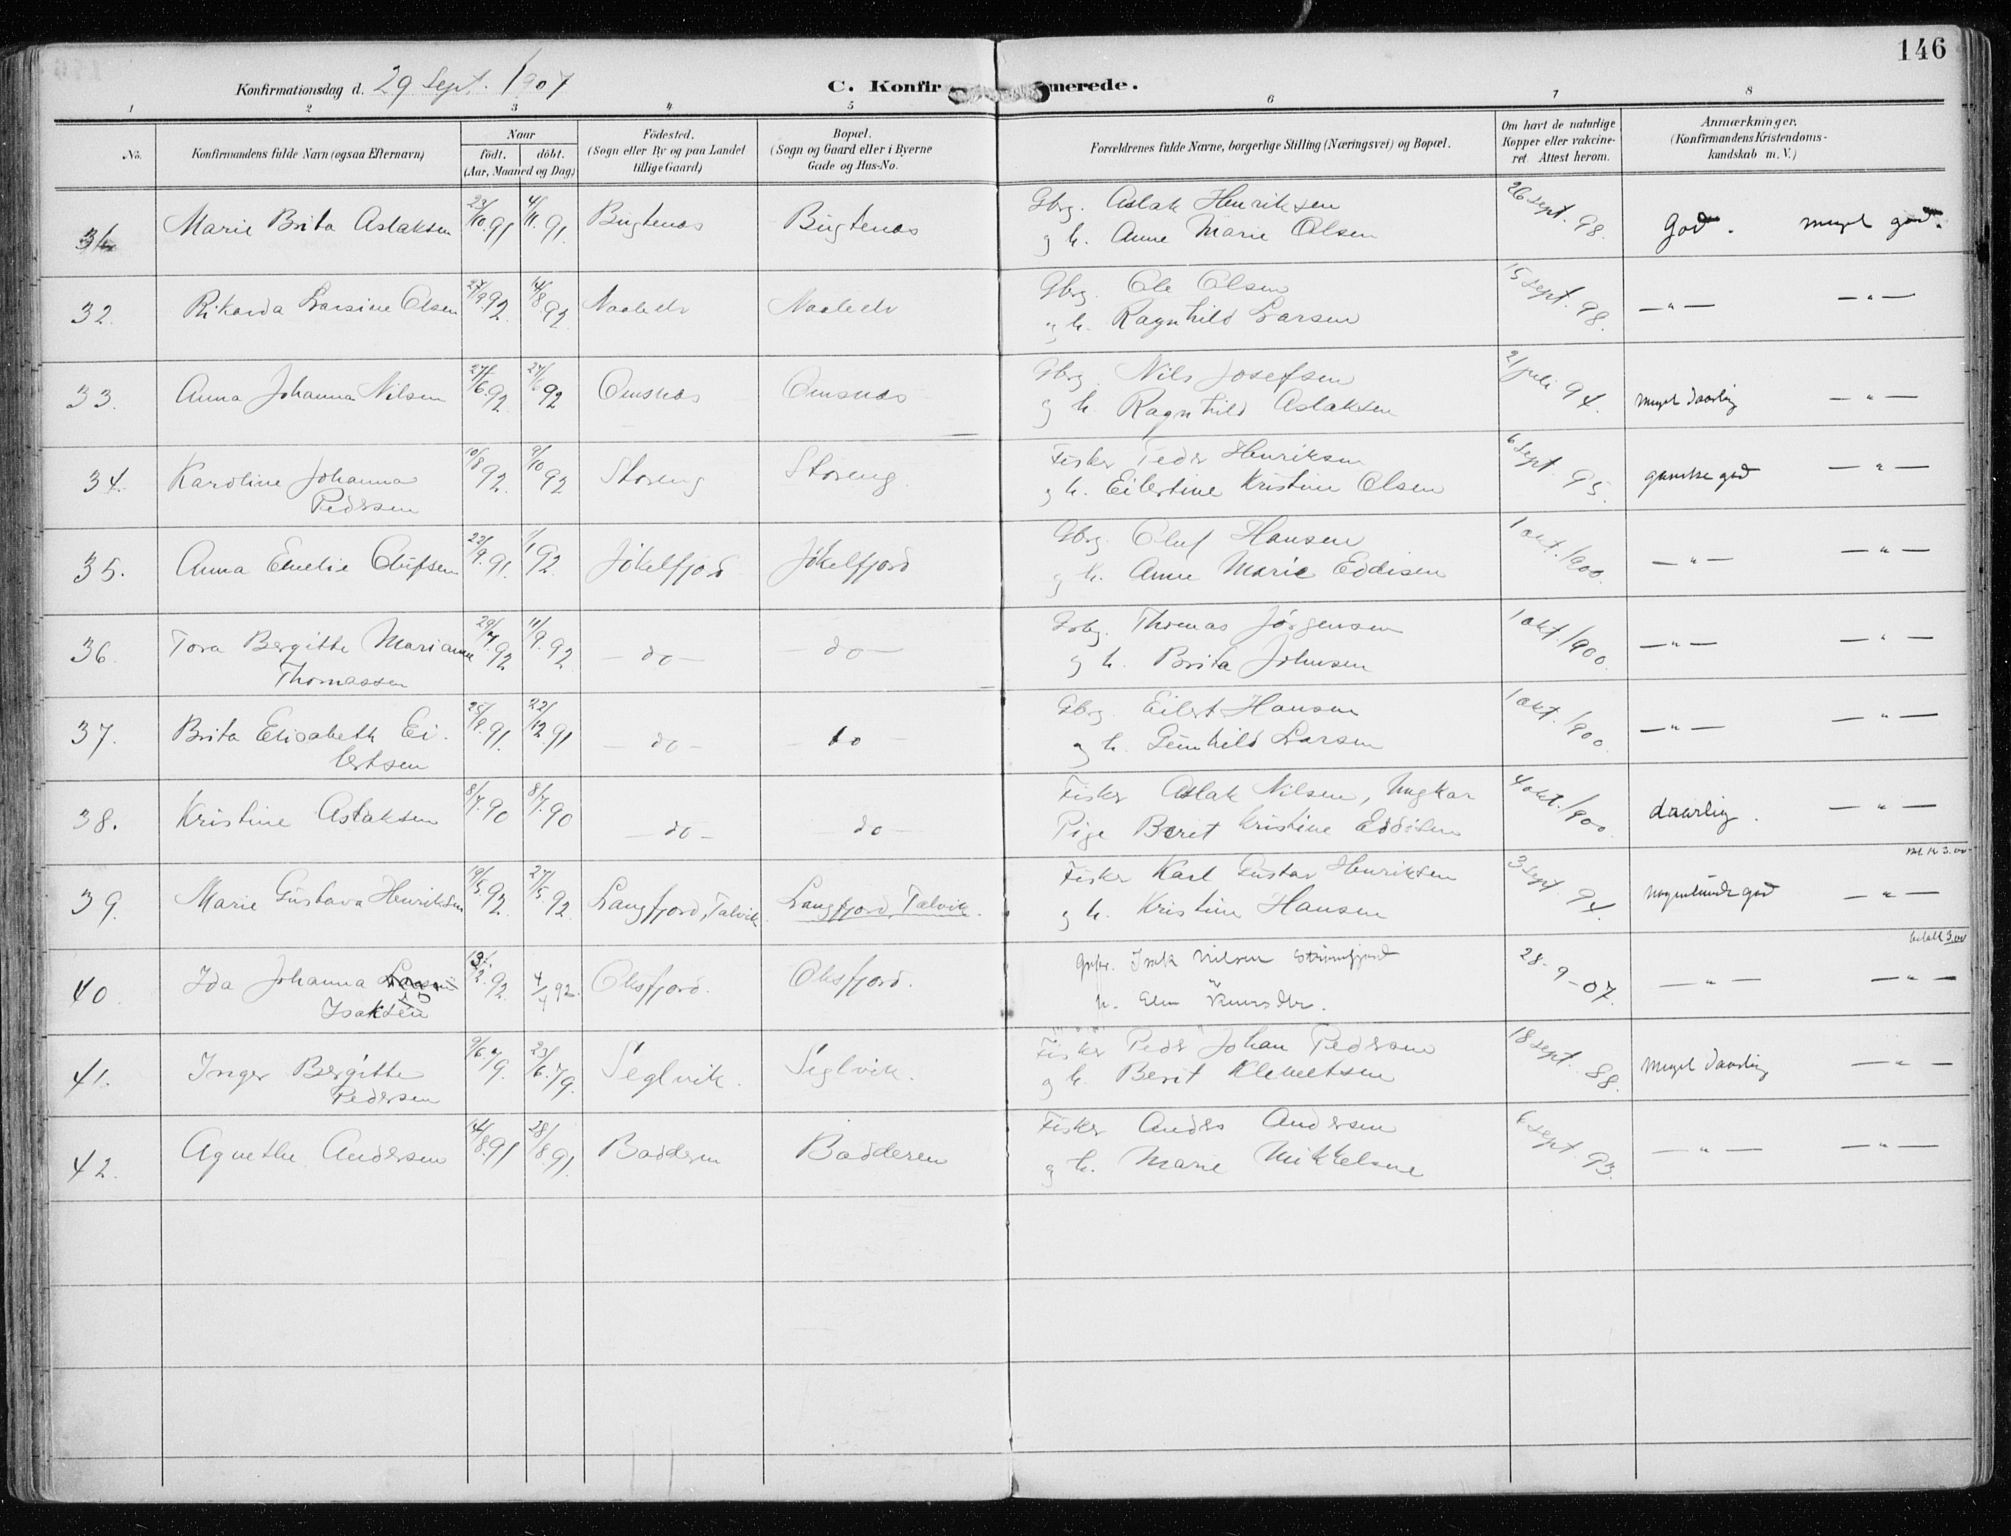 146
Konfirmationsdag d. 29 Sept. 1907 C. Konfir merede.
1 2 3 4 5 6 7 8
No. Konfirmandens fulde Navn (ogsaa Efternavn) Naar Födested. Bopæl. Forældrenes fulde Navne, borgerlige Stilling (Næringsvei) og Bopæl. Om havt de naturlige Anmærkninger.
födt. döbt. (Sogn eller By og paa Landet (Sogn og Gaard eller i Byerne Kopper eller vakcine- (Konfirmandens Kristendoms-
(Aar, Maaned og Dag) tillige Gaard) Gade og Hus-No. ret Attest herom. kundskab m. V.)
31. Marie Brita Aslaksen 23/10 91 4/11 91. Bugtenes Bugtenes Gbrg. Aslak Henriksen 26 sept. 98. God. meget god.
g h. Anne Marie Olsen
32. Rikarda Larsine Olsen 27/9 92 14/8 92 Gbrg. Ole Olsen 15 sept. 98. — " — — " —
g h. Ragnhild Larsen
33. Anna Johanna Nilsen 27/6. 92. 27/6 92 Omsnes Omsnes Gbrg. Nils Josefsen 21 juli 94. meget daarlig — " —
g h. Ragnhild Aslaksen
34. Karoline Johanna 10/8 92. 9/10 92 Storeng Storeng. Fisker Peder Henriksen 6 sept. 95. ganske god — " —
Pedersen g h. Eilertine Kristine Olsen
35. Anna Emelie Olufsen 22/9. 91. 1/1 92. Jökelfjord Jökelfjord Gbrg. Oluf Hansen 1 okt. 1900. — " — — " —
g h. Anne Marie Eddisen
36. Tora Bergitte Marianne 29/7. 92 11/9. 92. — do — — do — Gbrg. Thomas Jörgensen 1 okt. 1900. — " — — " —
Thomassen g h. Brita Johnsen
37. Brita Elisabeth Ei- 25/9. 91. 22/12. 91 — do — — do — Gbrg. Eilert Hansen 1 okt. 1900. — " — — " —
lertsen g h. Gunhild Larsen
38. Kristine Aslaksen 8/7. 90 8/7. 90 — do — — do — Fisker Aslak Nilsen, Ungkar 4 okt. 1900. daarlig. — " —
Pige Beret Kristine Eddisen
39. Marie Gustava Henriksen 19/5 92. 27/5 92. Langfjord, Talvik. Langfjord, Talvik. Fisker Karl Gustav Henriksen 3 sept. 94. nogenlunde god — " —
g h. Kristine Hansen
betalt 3.
40. Ida Johanna 13/2. 92. 4/4 92. Oksfjord. Oksfjord. Isak Nilsen 28-9-07. — " — — " —
Isaksen h.
41. Inger Bergitte 9/6. 79. 23/6. 79. Seglvik. Seglvik. Fisker Peder Johan Pedersen 18 sept. 88. meget daarlig — " —
Pedersen g h. Berit Klemetsen
42. Agnethe Andersen 14/8. 91 28/8. 91. Badderen Badderen Fisker Anders Andersen 6 sept. 93. — " — — " —
g h. Marie Mikkelsen